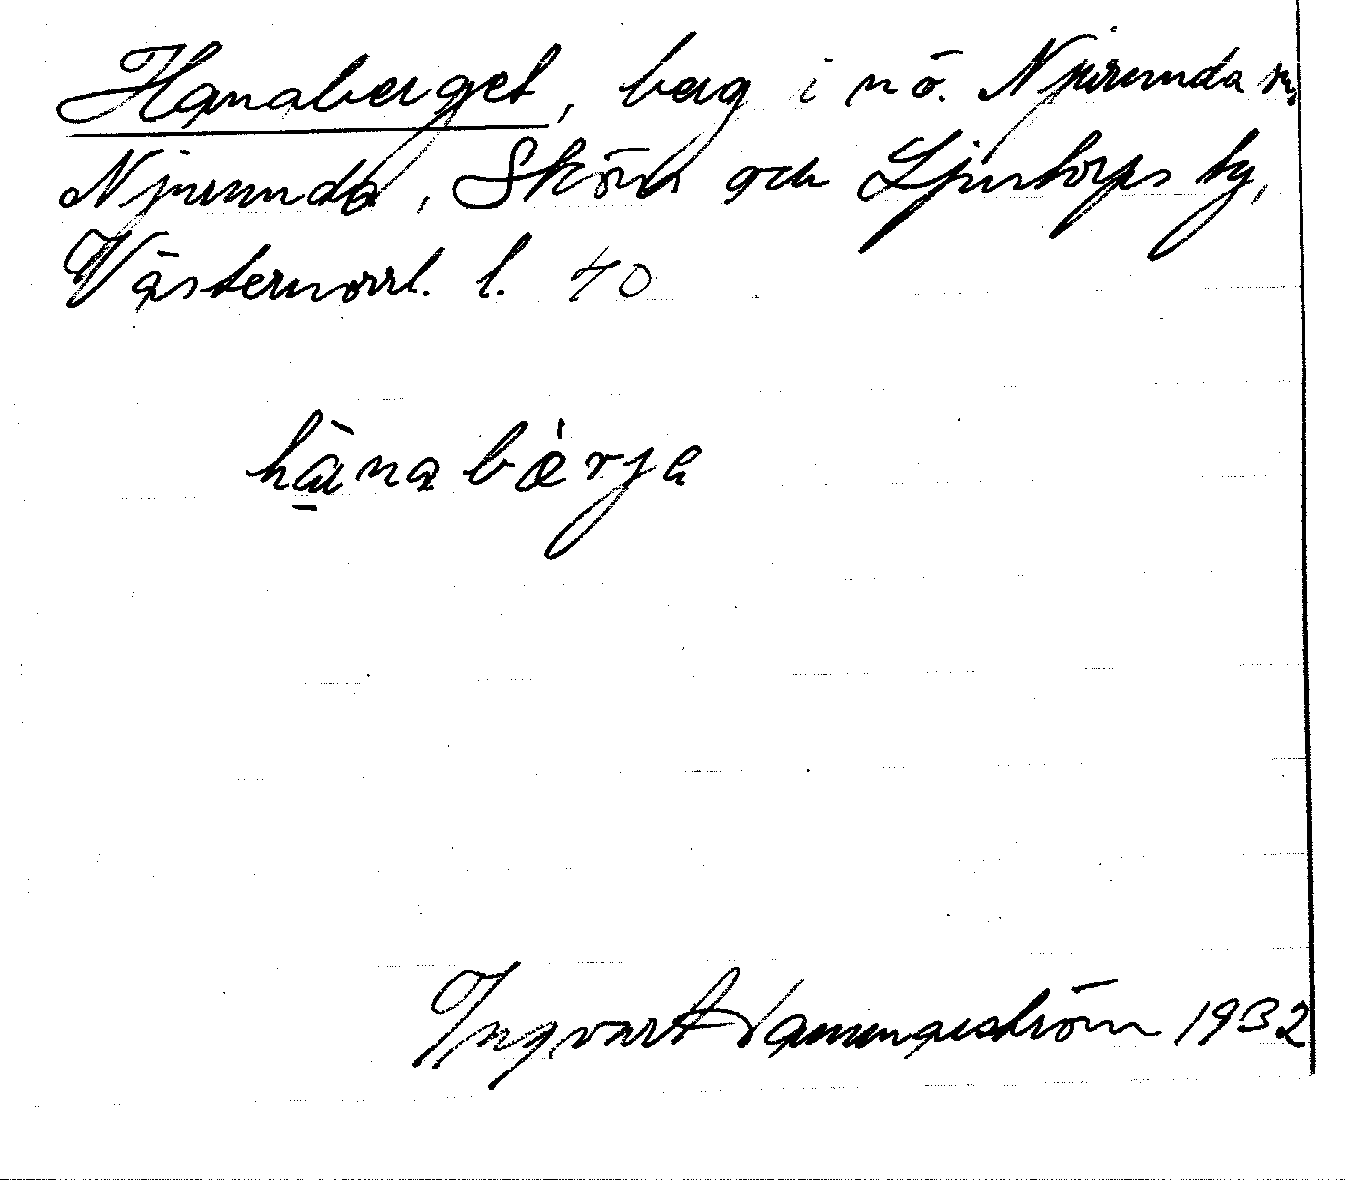 Hanaberget, berg i nö. Njurunda sn,
Njurunda, Sköns och Ljustorps tg,
Västernorrl. l. 40
hànabèrja
Ingvart 1932